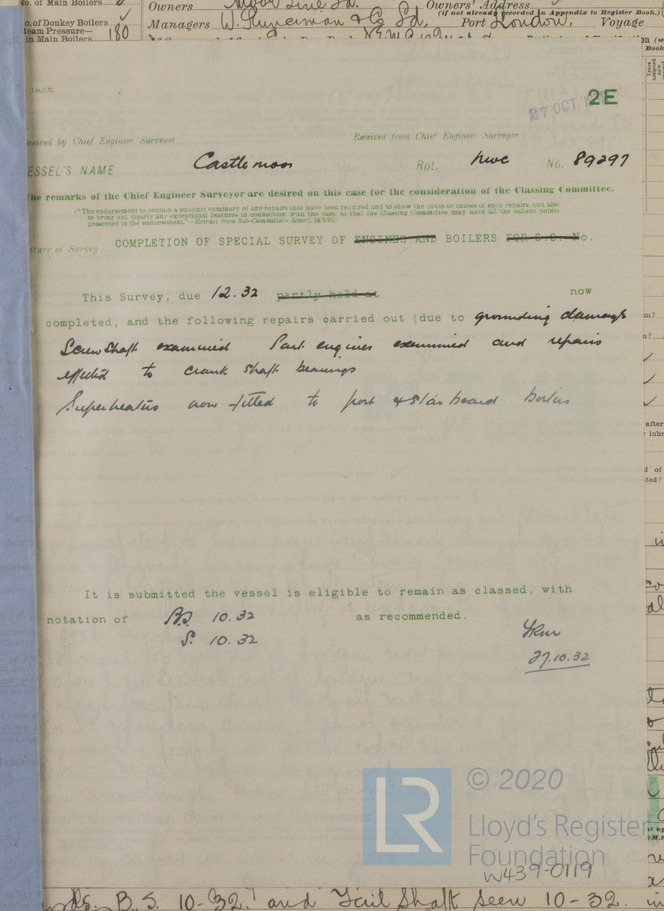 No. of Main Boilers
Owners Moor Line Ld. Owners' Address
(if not already recorded in Appendix to Register Book.)
No. of Donkey Boilers
Steam Pressure—
in Main Boilers 180
Managers W. Runciman & Co Ld. Port London. Voyage
27 OCT
2E
Received by Chief Engineer Surveyor
Received from Chief Engineer Surveyor
VESSEL'S NAME Castlemoor Rpt. Nwc No. 89297
The remarks of the Chief Engineer Surveyor are desired on this case for the consideration of the Classing Committee.
("The endorsement to contain a concise summary of any repairs that have been required and to show the cause or causes of such repairs, and also
to bring out clearly any exceptional features in connection with the case, so that the Classing Committee may have all the salient points
presented in the endorsement."—Extract from Sub-Committee's Report,
Nature of Survey COMPLETION OF SPECIAL SURVEY OF ENGINES AND BOILERS FOR S.S. No.
This Survey, due 12.32 partly held at now
completed, and the following repairs carried out (due to grounding damage
Screwshaft examined Part engines examined and repairs
effected to crank shaft bearings
Superheaters now fitted to port & starboard boilers
It is submitted the vessel is eligible to remain as classed, with
notation of BS 10.32 as recommended.
S. 10.32
27.10.32
© 2020
LR
Lloyd's Register
Foundation
W439-0119
B.S. 10-32. and Tail Shaft seen 10-32.